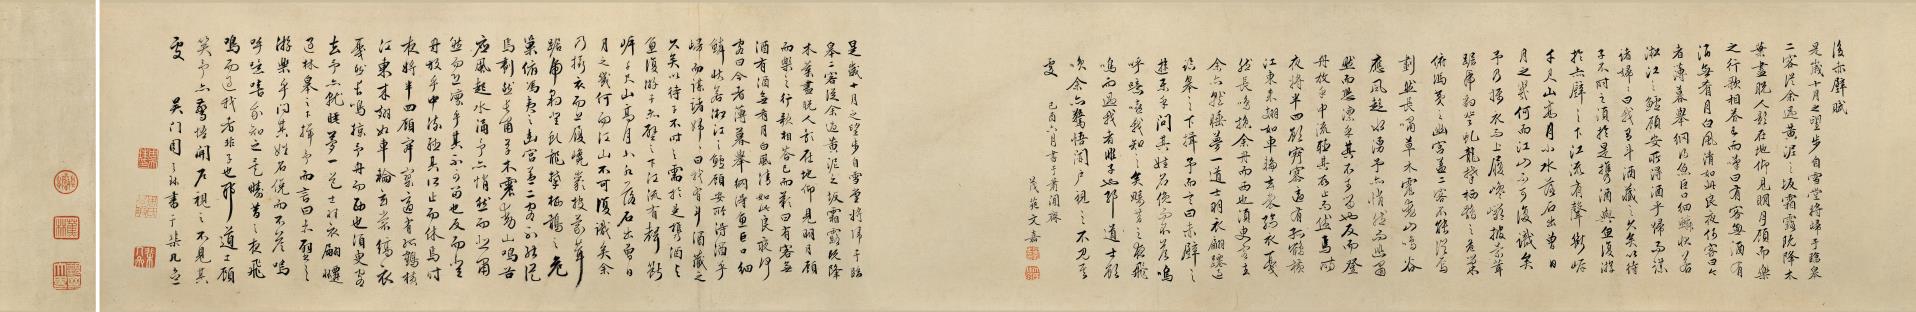 後赤壁賦
是歲十月之望步自雪堂將歸于臨皋
二客從余過黃泥之坂霜露既降木
葉盡脫人影在地仰見明月顧而樂
之行歌相答已而嘆曰有客無酒有
酒無肴月白風清如此良夜何客曰今
者薄暮舉網得魚巨口細鱗狀若
淞江之鱸顧安所得酒乎歸而謀
諸婦婦曰我有斗酒藏之久矣以待
子不時之須於是攜酒與魚復游
於赤壁之下江流有聲斷岸
千尺山高月小水落石出曾日
月之幾何而江山不可復識矣
予乃攝衣而上履巉巖披蒙茸
踞虎豹登虬龍攀栖鶻之危巢
俯馮夷之幽宮蓋二客不能從焉
劃然長嘯草木震動山鳴谷
應風起水湧予亦悄然而悲肅
然而恐凜乎其不可留也反而登
舟放乎中流聽其所止而休焉時
夜將半四顧寂寥適有孤鶴橫
江東來翅如車輪玄裳縞衣戛
然長鳴掠余舟而西也須臾客去
余亦就睡夢一道士羽衣翩躚過
臨皋之下揖予而言曰赤壁之
遊樂乎問其姓名俛而不答嗚
呼噫嘻我知之矣疇昔之夜飛
鳴而過我者非子也耶道士顧
笑余亦驚悟開戶視之不見其
處
己酉六月書于蕭閒齋
茂苑文嘉
是歲十月之望步自雪堂將歸于臨
皋二客從余過黃泥之坂霜露既降
木葉盡脫人影在地仰見明月顧
而樂之行歌相答已而歎曰有客無
酒有酒無肴月白風清如此良夜何
客曰今者薄暮舉網得魚巨口細
鱗狀若淞江之鱸顧安所得酒乎
歸而謀諸婦婦曰我有斗酒藏之
久矣以待子不時之需於是攜酒與
魚復游于赤壁之下江流有聲斷
岸千尺山高月小水落石出曾日
月之幾何而江山不可復識矣余
乃攝衣而上履巉巖披蒙茸
踞虎豹登虬龍攀栖鶻之危
巢俯馮夷之幽宮蓋二客不能從
焉劃然長嘯草木震動山鳴谷
應風起水涌予亦悄然而悲肅
然而恐凜乎其不可留也反而登
舟放乎中流聽其所止而休焉時
夜將半四顧寂寥適有孤鶴橫
江東來翅如車輪玄裳縞衣
戛然長鳴掠予舟而西也須臾客
去予亦就睡夢一道士羽衣翩躚
過臨皋之下揖予而言曰赤壁之
游樂乎問其姓名俛而不答嗚
呼噫嘻我知之矣疇昔之夜飛
鳴而過我者非子也耶道士顧
笑予亦驚悟開戶視之不見其
處 吳門周 書于